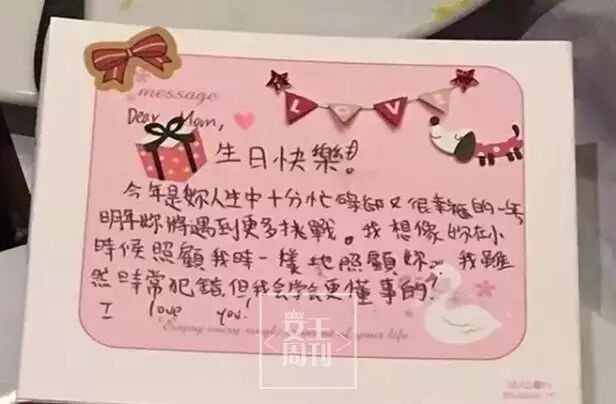 message
LOVE
Dear Mom,
生日快樂!
今年是妳人生中十分忙碌卻又很幸福的一年
明年妳將遇到更多挑戰。我想像妳在小
時候照顧我時一樣地照顧妳。我雖
然時常犯錯,但我會學會更懂事的!
I love you!
Enjoy every single moment of your life.
女王
周刊